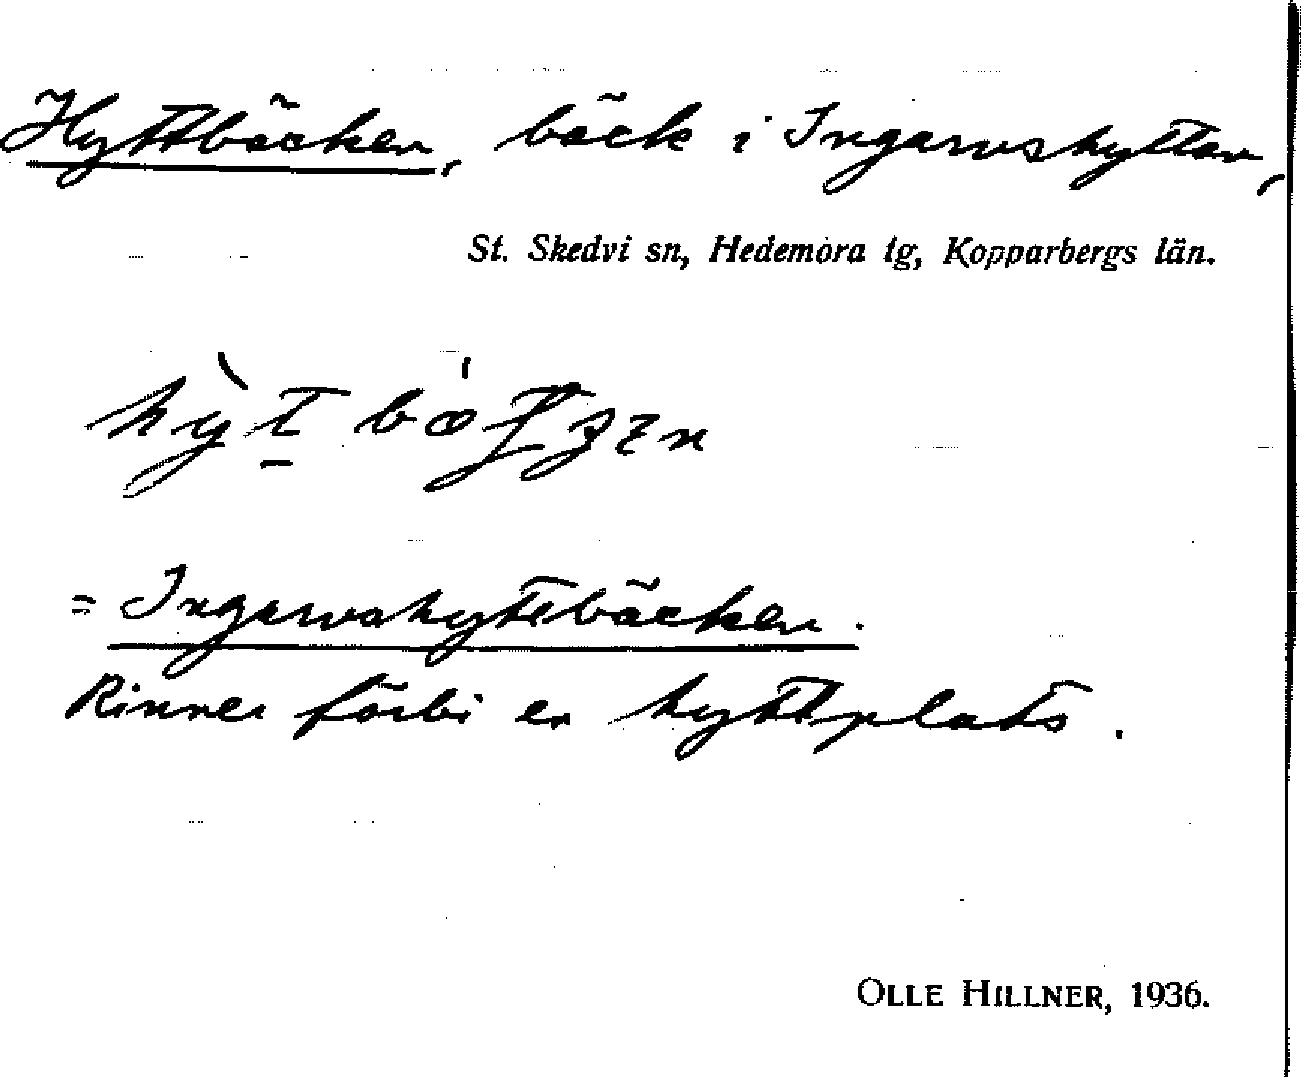 Hyttbäcken, bäck i Ingarvshyttan,
St. Skedvi sn, Hedemora tg, Kopparbergs län.
= Ingarvshyttebäcken.
Rinner förbi en hyttplats.
OLLE HILLNER, 1936.